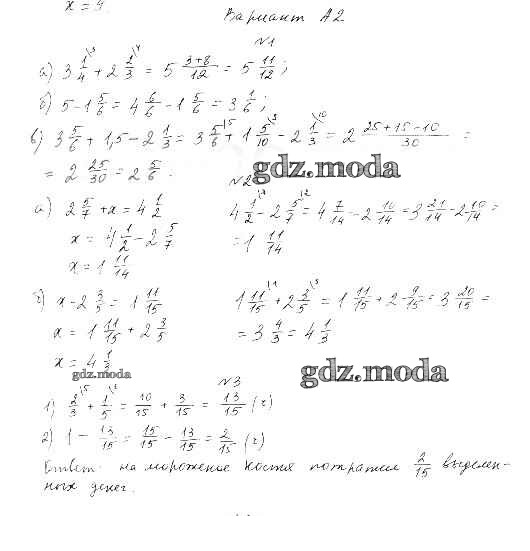 x = 9.
Вариант А2
№1
а) 3 1/4 \3 + 2 2/3 \4 = 5 3+8/12 = 5 11/12 ;
б) 5 - 1 5/6 = 4 6/6 - 1 5/6 = 3 1/6 ;
в) 3 5/6 + 1,5 - 2 1/3 = 3 5/6 \5 + 1 5/10 \3 - 2 1/3 \10 = 2 25+15-10/30 =
= 2 25/30 = 2 5/6 .
gdz.moda
№2
а) 2 5/7 + x = 4 1/2
x = 4 1/2 - 2 5/7
x = 1 11/14
4 1/2 \7 - 2 5/7 \2 = 4 7/14 - 2 10/14 = 3 21/14 - 2 10/14 =
= 1 11/14
г) x - 2 3/5 = 1 11/15
x = 1 11/15 + 2 3/5
x = 4 1/3
1 11/15 \1 + 2 3/5 \3 = 1 11/15 + 2 9/15 = 3 20/15 =
= 3 4/3 = 4 1/3
gdz.moda
gdz.moda
№3
1) 2/3 \5 + 1/5 \3 = 10/15 + 3/15 = 13/15 (ч)
2) 1 - 13/15 = 15/15 - 13/15 = 2/15 (ч)
Ответ: на мороженое Костя потратил 2/15 выделен-
ных денег.